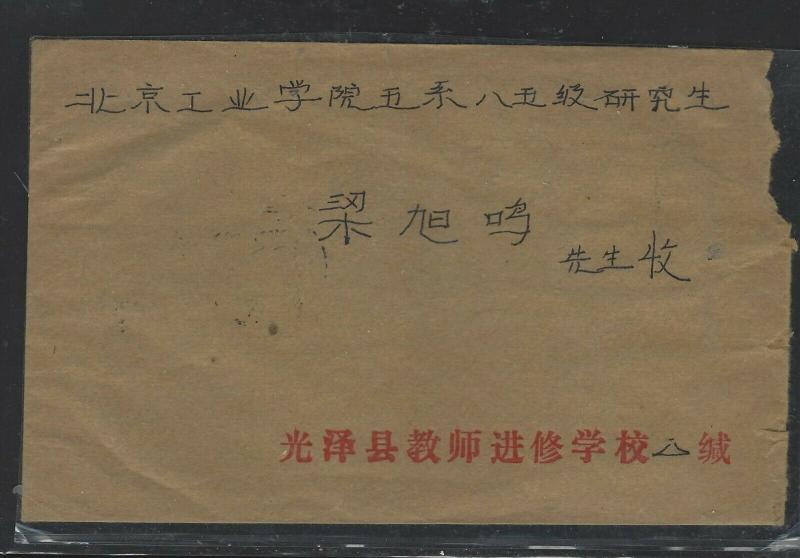 北京工业学院五系八五级研究生
梁旭鸣
先生收
光泽县教师进修学校 缄